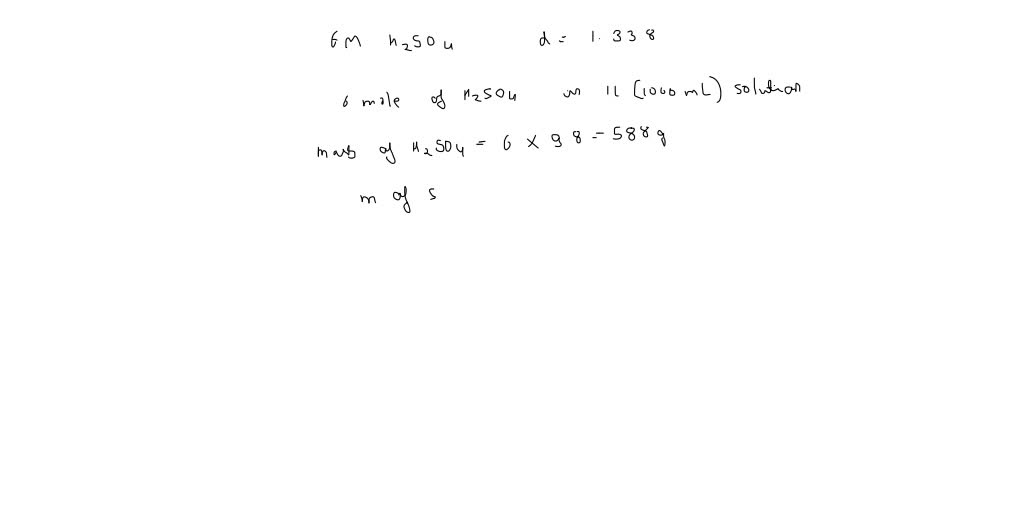 6M H2SO4 d = 1.338
6 mole of H2SO4 in 1L (1000 mL) solution
mass of H2SO4 = 6 x 98 = 588 g
m of s